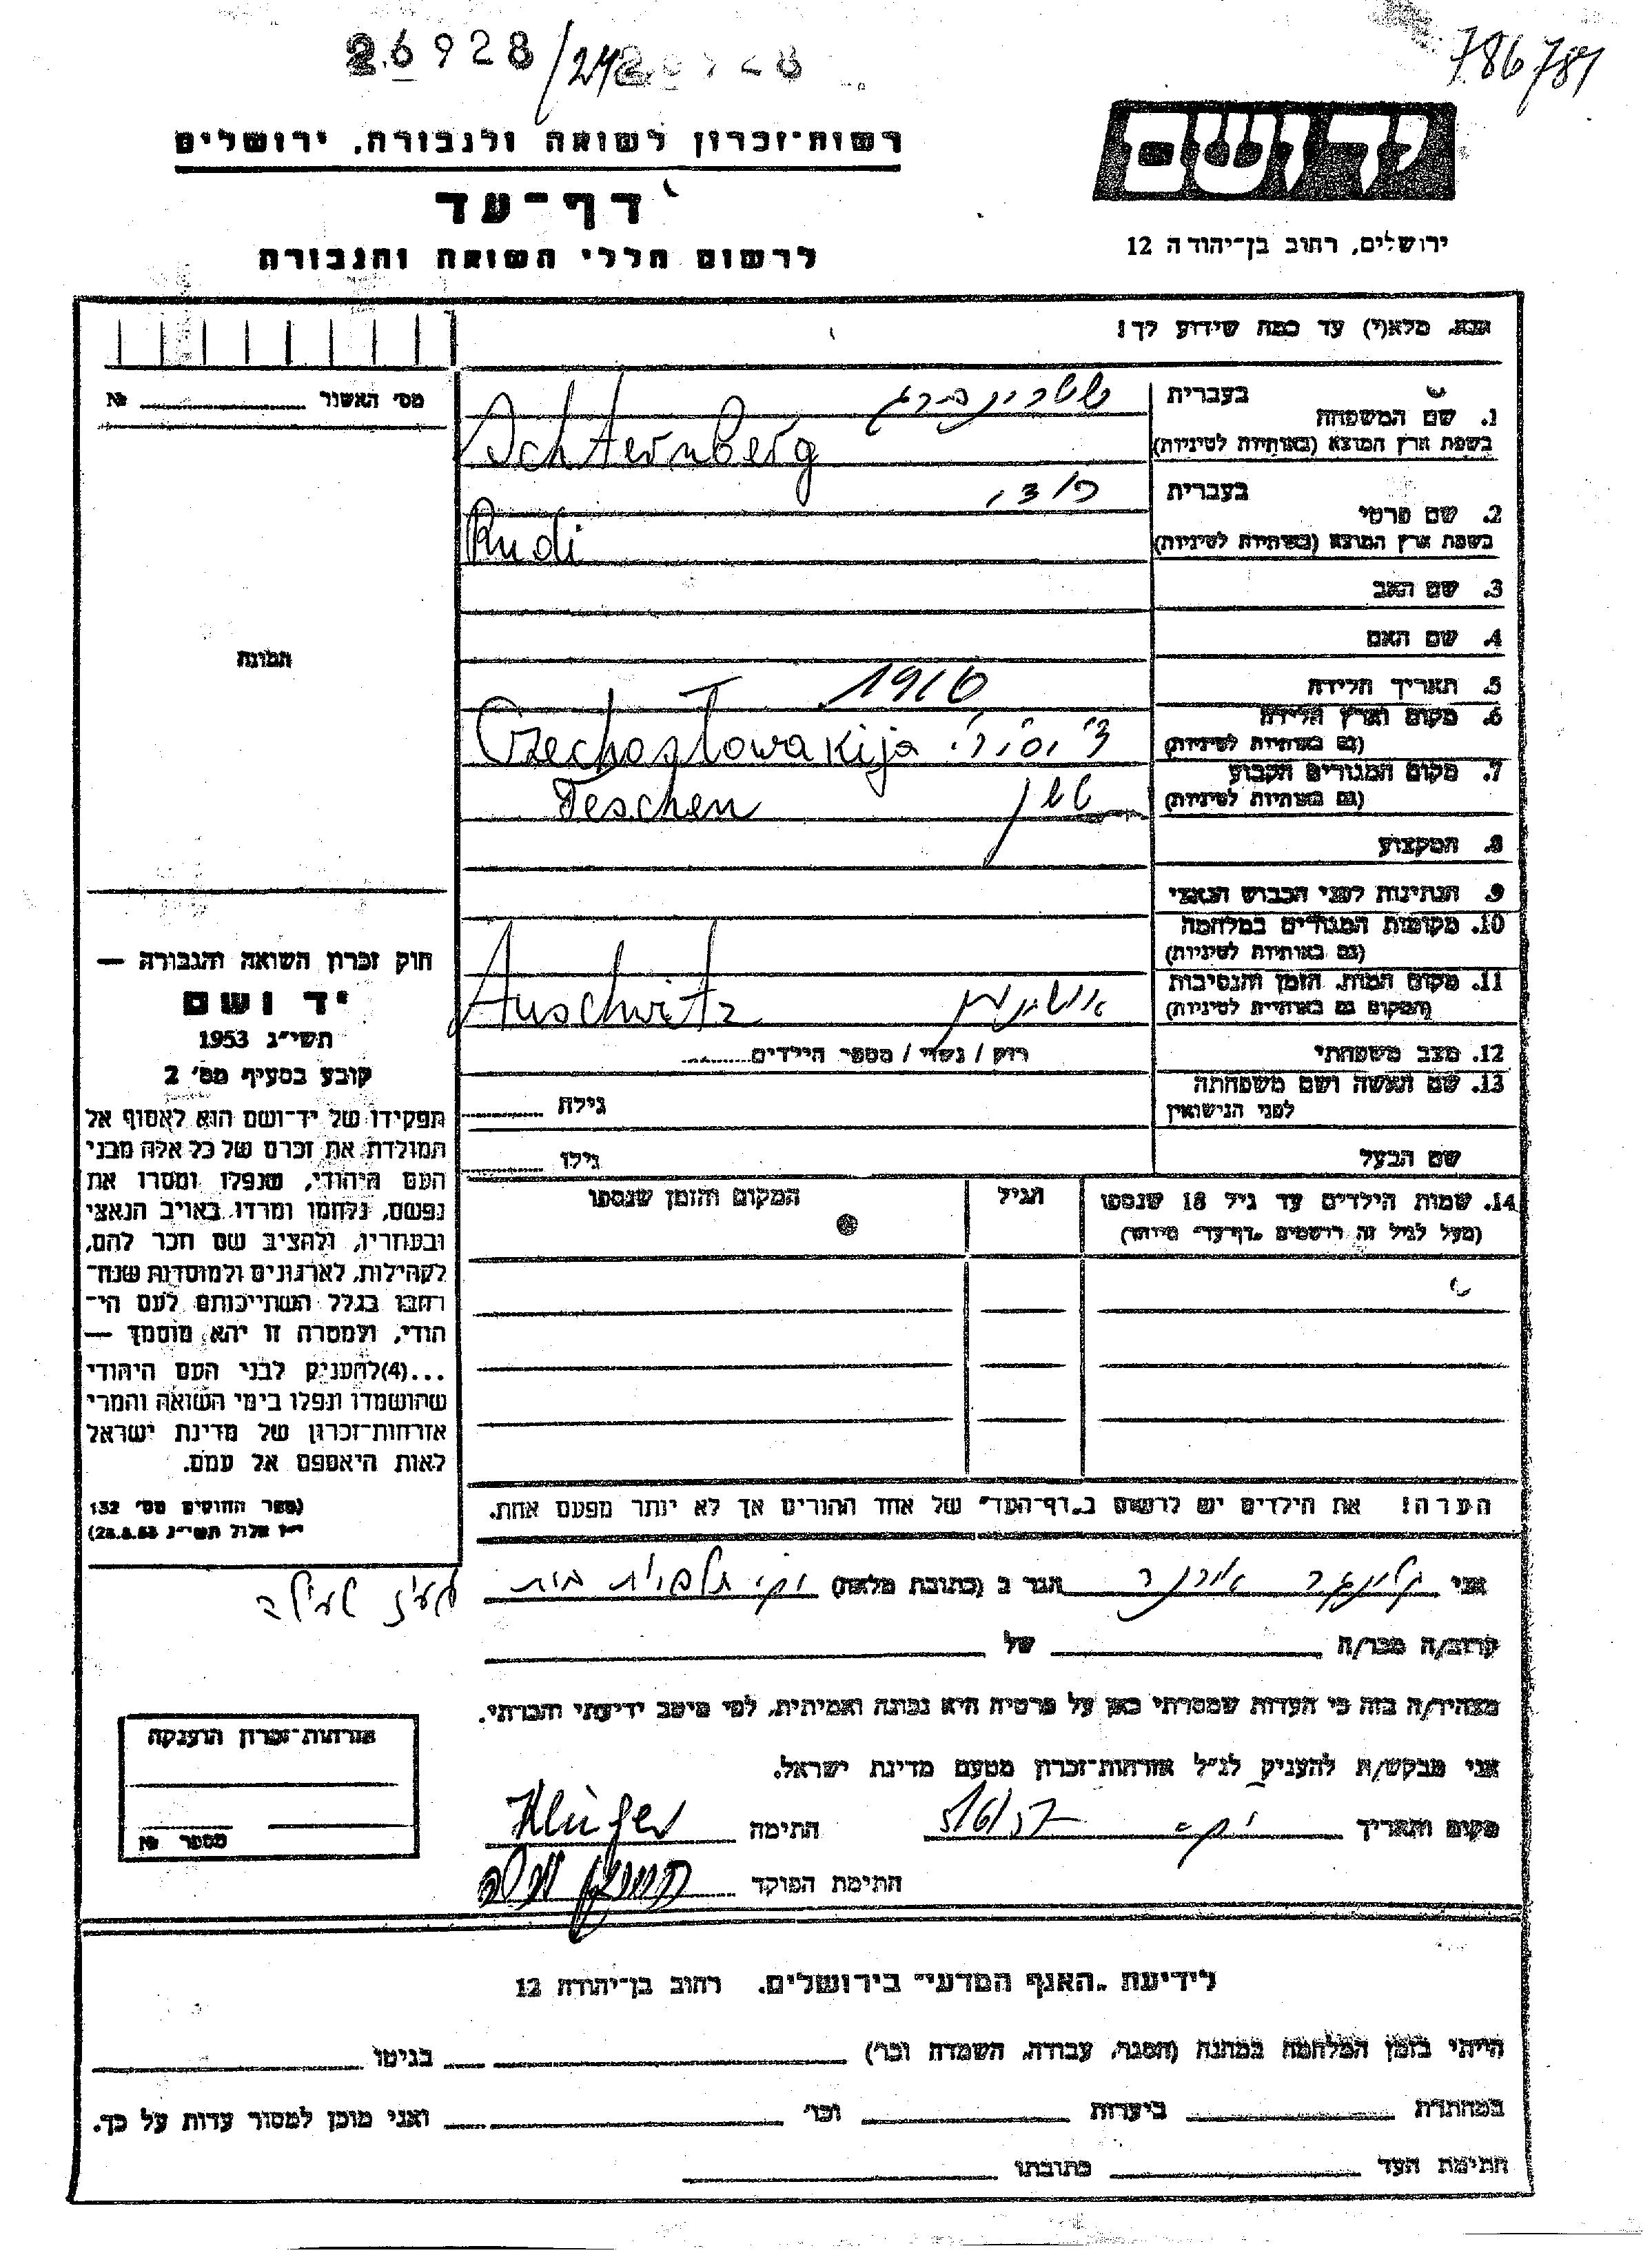 26928/24
786781
רשות־זכרון לשואה ולגבורה, ירושלים
יד ושם
דף־עד
ירושלים, רחוב בן־יהודה 12
לרשום חללי השואה והגבורה
נא מלא(י) עד כמה שידוע לך!
מס׳ האשור № 
1. שם המשפחה
בעברית שטרינברג
בשפת ארץ המוצא (באותיות לטיניות) Schternberg
2. שם פרטי
בעברית רודי
בשפת ארץ המוצא (באותיות לטיניות) Rudi
3. שם האב
4. שם האם
תמונה
5. תאריך הלידה 1916
6. מקום וארץ הלידה
(גם באותיות לטיניות) Czechoslowakija
7. מקום המגורים הקבוע טשן
(גם באותיות לטיניות) Teschen
8. המקצוע
9. הנתינות לפני הכבוש הנאצי
10. מקומות המגורים במלחמה
(גם באותיות לטיניות)
11. מקום המות, הזמן והנסיבות
(המקום גם באותיות לטיניות) Auschwitz
12. מצב משפחתי רוק / נשוי / מספר הילדים
13. שם האשה ושם משפחתה
לפני הנישואין גילה
שם הבעל גילו
14. שמות הילדים עד גיל 18 שנספו הגיל המקום והזמן שנספו
(מעל לגיל זה רושמים „דף־עד” מיוחד)
חוק זכרון השואה והגבורה —
יד ושם
תשי״ג 1953
קובע בסעיף מס׳ 2
תפקידו של יד־ושם הוא לאסוף אל
המולדת את זכרם של כל אלה מבני
העם היהודי, שנפלו ומסרו את
נפשם, נלחמו ומרדו באויב הנאצי
ובעוזריו, ולהציב שם וזכר להם,
לקהילות, לארגונים ולמוסדות שנח־
רבו בגלל השתייכותם לעם הי־
הודי, ולמטרה זו יהא מוסמך —
...(4)להעניק לבני העם היהודי
שהושמדו ונפלו בימי השואה והמרי
אזרחות־זכרון של מדינת ישראל
לאות היאספם אל עמם.
(ספר החוקים מס׳ 132
י״ז אלול תשי״ג 28.8.53)
הערה! את הילדים יש לרשום ב„דף־העד” של אחד ההורים אך לא יותר מפעם אחת.
אני קלוגר הגר ב (כתובת מלאה)
קרוב/ה מכר/ה של
מצהיר/ה בזה כי העדות שמסרתי כאן על פרטיה היא נכונה ואמיתית, לפי מיטב ידיעתי והכרתי.
אני מבקש/ת להעניק לנ״ל אזרחות־זכרון מטעם מדינת ישראל.
מקום ותאריך 5/6/57 חתימה Klüger
חתימת הפוקד
אזרחות־זכרון הוענקה
מספר №
לידיעת „האגף המדעי” בירושלים, רחוב בן־יהודה 12
הייתי בזמן המלחמה במחנה (הסגר, עבודה, השמדה וכו׳) בגיטו
במחתרת ביערות וכו׳ ואני מוכן למסור עדות על כך.
חתימת העד כתובתו